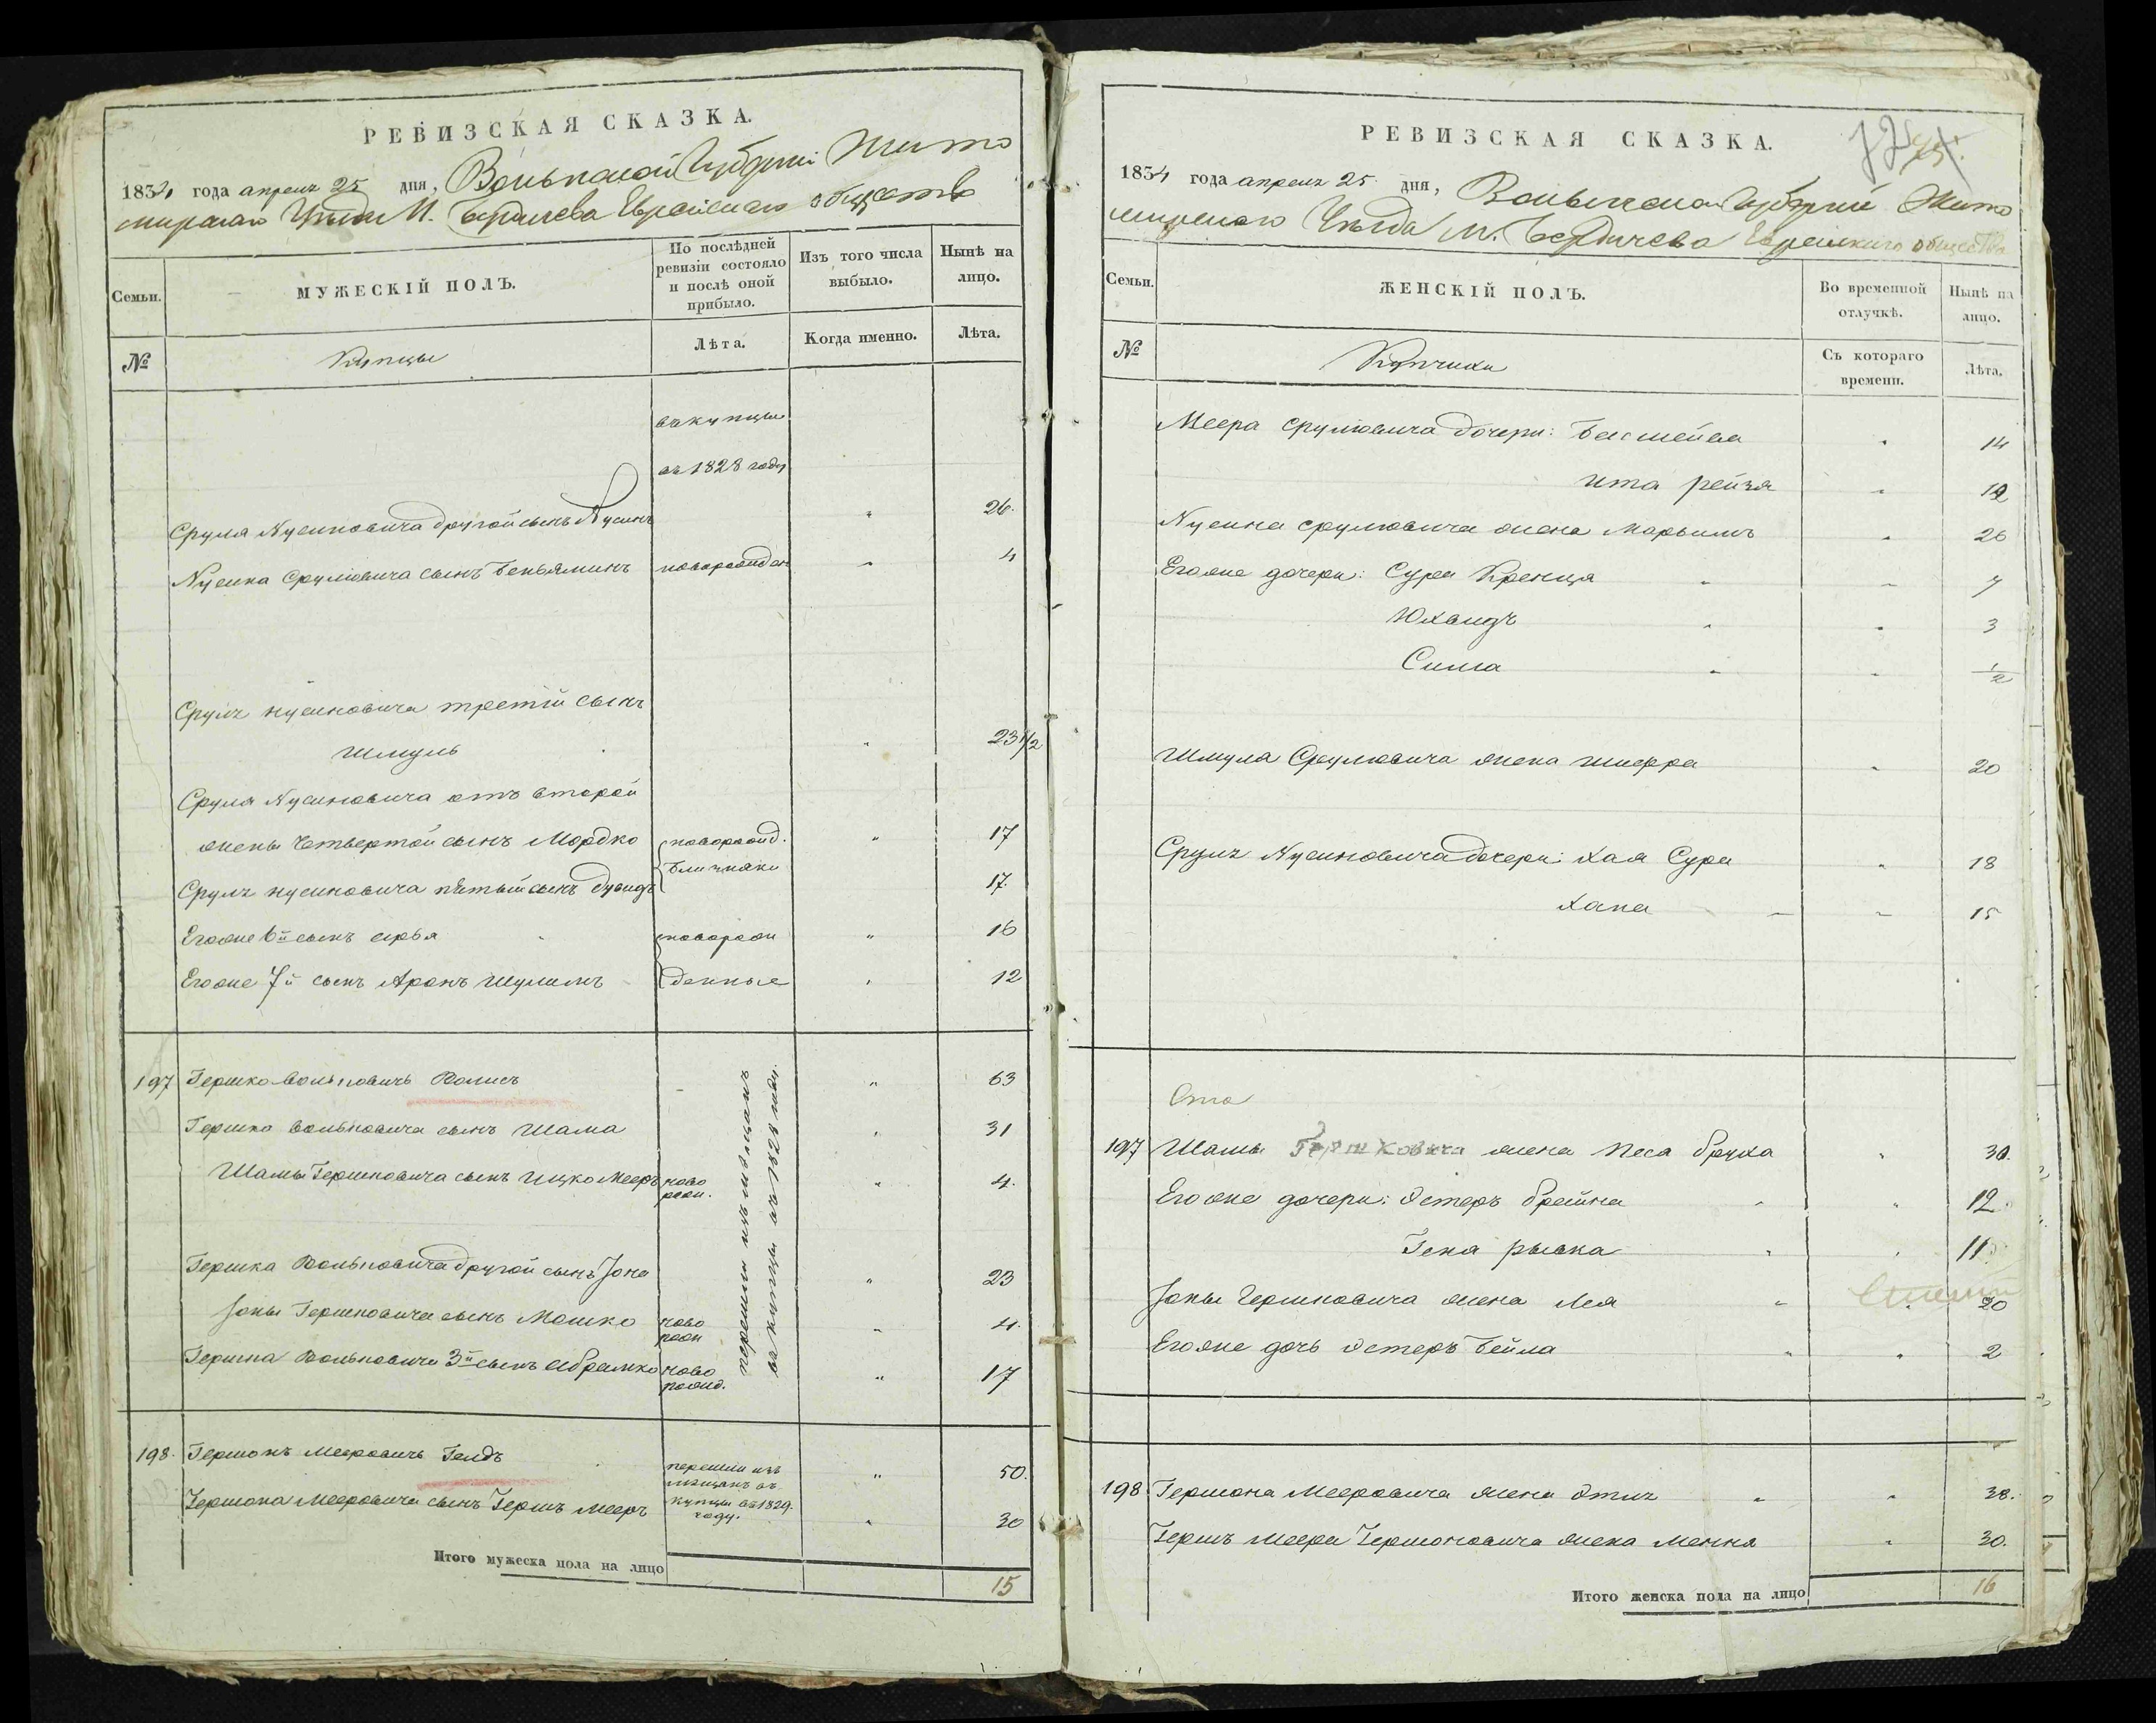 РЕВИЗСКАЯ СКАЗКА.
1834 года апреля 25 дня, Волынской Губерніи Жито
мирскаго Уезда М. Бердичева Еврейскаго общества
Семьи.
МУЖЕСКІЙ ПОЛЪ.
По послѣдней ревизіи состояло и послѣ оной прибыло.
Изъ того числа выбыло.
Нынѣ на лицо.
№
Купцы
Лѣта.
Когда именно.
Лѣта.
въ купцы
въ 1828 году
Сруля Нусиновича другой сынъ Нусинъ " 26.
Нусина Срулювича сынъ Беньяминъ новорожден " 4
Сруля нусиновича третій сынъ
Шмуль " 23 1/2
Сруля Нусиновича отъ второй
жены четвертой сынъ Мордко новорожд. " 17
близнаки
Сруля нусиновича пятый сынъ Дувидъ 17.
Егоже 6й сынъ Арья новорож " 16
Егоже 7й сынъ Аронъ Шулимъ денные " 12
197 Гершко Вольковичъ " 63
Гершка Вольковича сынъ Шама " 31
Шамы Гершковича сынъ Ицко Мееръ ново рож. " 4.
Гершка Вольковича другой сынъ Іона " 23
Іоны Гершковича сынъ Мошко ново рож " 4.
Гершка Вольковича 3й сынъ Абрамко ново рожд. " 17
перешли изъ мѣщанъ
въ купцы въ 1828 году.
198. Гершонъ Мееровичъ Гелдъ " 50.
перешли изъ
мѣщанъ въ
купцы въ 1829
году.
Гершона Мееровича сынъ Гершъ Мееръ " 30
Итого мужеска пола на лицо 15
РЕВИЗСКАЯ СКАЗКА.
1834 года апреля 25 дня, Волынской Губерніи Жито
мирскаго Уезда М. Бердичева Еврейскаго общества
Семьи.
ЖЕНСКІЙ ПОЛЪ.
Во временной отлучкѣ.
Нынѣ на лицо.
№
Купчихи
Съ котораго времени.
Лѣта.
Меера Срулювича дочери: Бейла " 14
Ита рейзя " 12
Нусина срулювича жена Марьимъ " 26
Егоже дочери: Сура Кренця " 7
Юхвидъ " 3
Сима " 1/2
Шмуля Срулювича жена Шифра " 20
Сруля Нусиновича дочери: Хая Сура " 18
Хана " 15
197 Шамы Гершковича жена Песа Бруха " 30.
Егоже дочери: Эстеръ Брейна " 12
Гена рывка " 11
Іоны Гершковича жена Лея " 20
Егоже дочь Эстеръ Бейла " 2
198. Гершона Мееровича жена Этля " 38.
Гершъ Меера Гершоновича жена Мення " 30.
Итого женска пола на лицо 16